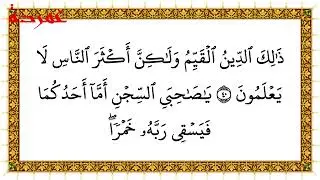 ذَٰلِكَ ٱلدِّينُ ٱلْقَيِّمُ وَلَٰكِنَّ أَكْثَرَ ٱلنَّاسِ لَا
يَعْلَمُونَ ٤٠ يَٰصَٰحِبَىِ ٱلسِّجْنِ أَمَّآ أَحَدُكُمَا
فَيَسْقِى رَبَّهُۥ خَمْرًا ۖ